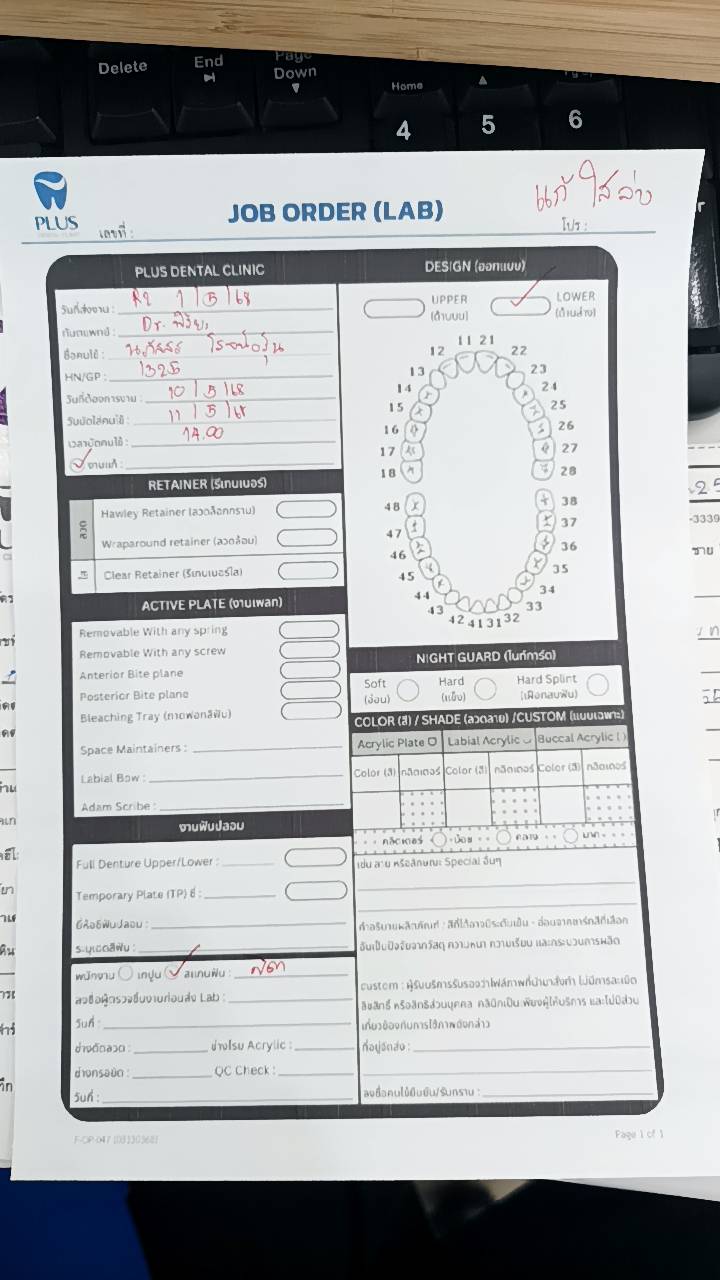 Delete
End
Page
Down
Home
4
5
6
PLUS
DENTAL CLINIC
เลขที่ :
JOB ORDER (LAB)
แก้ ใสล่าง
โปร :
PLUS DENTAL CLINIC
วันที่ส่งงาน : 7 | 5 | 68
ทันตแพทย์ : Dr.
ชื่อคนไข้ :
HN/GP : 1325
วันที่ต้องการงาน : 10 | 5 | 68
วันนัดใส่คนไข้ : 11 | 5 | 68
เวลานัดคนไข้ : 14.00
งานแก้ :
RETAINER (รีเทนเนอร์)
ลวด
Hawley Retainer (ลวดล็อกกราม)
Wraparound retainer (ลวดล้อม)
ใส
Clear Retainer (รีเทนเนอร์ใส)
ACTIVE PLATE (งานเพลท)
Removable With any spring
Removable With any screw
Anterior Bite plane
Posterior Bite plane
Bleaching Tray (ถาดฟอกสีฟัน)
Space Maintainers :
Labial Bow :
Adam Scribe :
งานฟันปลอม
Full Denture Upper/Lower :
Temporary Plate (TP) ซี่ :
ยี่ห้อซี่ฟันปลอม :
ระบุเฉดสีฟัน :
พนักงาน เทปูน สแกนฟัน :
ลงชื่อผู้ตรวจชิ้นงานก่อนส่ง Lab :
วันที่ :
ช่างดัดลวด : ช่างโรย Acrylic :
ช่างกรอขัด : QC Check :
วันที่ :
DESIGN (ออกแบบ)
UPPER
(ด้านบน)
LOWER
(ด้านล่าง)
11 21
12 22
13 23
14 24
15 25
16 26
17 27
18 28
48 38
47 37
46 36
45 35
44 34
43 33
42 41 31 32
NIGHT GUARD (ไนท์การ์ด)
Soft
(อ่อน)
Hard
(แข็ง)
Hard Splint
(เฝือกสบฟัน)
COLOR (สี) / SHADE (ลวดลาย) /CUSTOM (แบบเฉพาะ)
Acrylic Plate Labial Acrylic Buccal Acrylic ( )
Color (สี) กลิตเตอร์ Color (สี) กลิตเตอร์ Color (สี) กลิตเตอร์
กลิตเตอร์ น้อย กลาง มาก
เช่น ลาย หรือลักษณะ Special อื่นๆ
คำอธิบายผลิตภัณฑ์ : สีที่ได้อาจมีระดับเข้ม - อ่อนจากชาร์ทสีที่เลือก
อันเป็นปัจจัยจากวัสดุ ความหนา ความเรียบ และกระบวนการผลิต
custom : ผู้รับบริการรับรองว่าไฟล์ภาพที่นำมาสั่งทำ ไม่มีการละเมิด
ลิขสิทธิ์ หรือสิทธิส่วนบุคคล คลินิกเป็นเพียงผู้ให้บริการ และไม่มีส่วน
เกี่ยวข้องกับการใช้ภาพดังกล่าว
ที่อยู่จัดส่ง :
ลงชื่อคนไข้ยืนยัน/รับทราบ :
Page 1 of 1